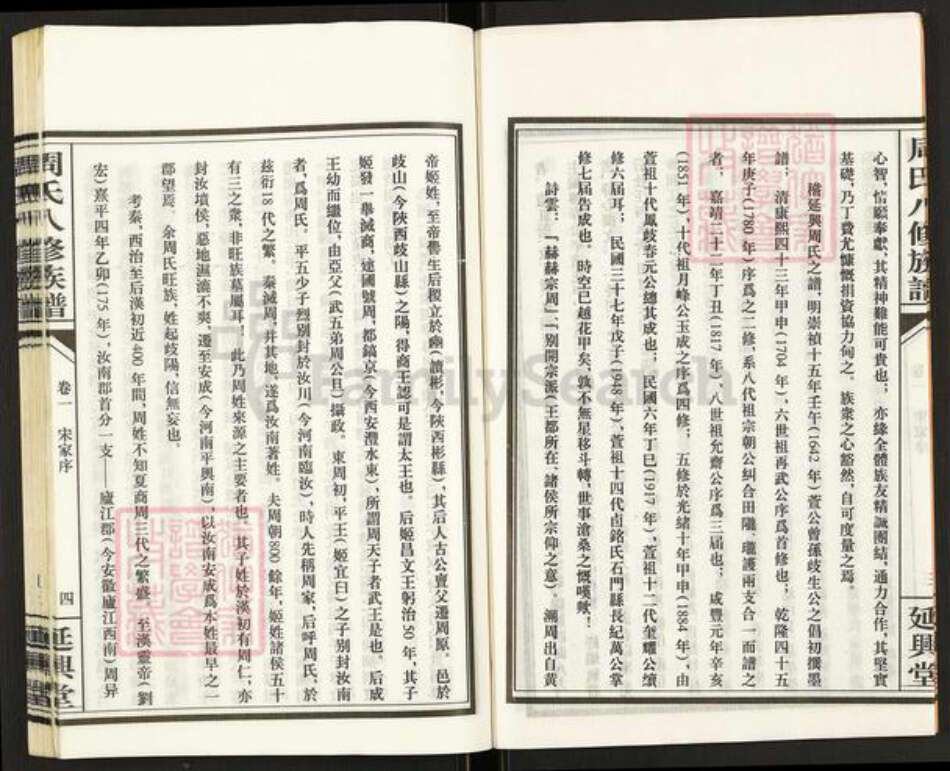 周氏八修族譜
延興堂
心智,情願奉獻,其精神難能可貴也;亦緣全體族友精誠團結,通力合作,其堅實
基礎,乃丁費尤慷慨捐資協力甸之。族衆之心豁然,自可度量之焉。
稽延興周氏之譜,明崇禎十五年壬午(1642年)萱公曾孫歧生公之倡初攢墨
譜;清康熙四十三年甲申(1704年),六世祖再武公序爲首修也;乾隆四十五
年庚子(1780年)序爲之二修,系八代祖宗朝公糾合田隴、瓏護兩支合一而譜之
者;嘉靖二十二年丁丑(1817年),八世祖允齋公序爲三屆也;咸豐元年辛亥
(1851年),十代祖月峰公玉成之序爲四修;五修於光緒十年甲申(1884年),由
萱祖十代鳳歧春元公總其成也;民國六年丁巳(1917年),萱祖十二代玺耀公續
修六屆耳;民國三十七年戊子(1948年),萱祖十四代卣銘氏石門縣長紀萬公掌
修七屆告成也。時空已越花甲矣,孰不無星移斗轉,世事滄桑之慨嘆歟!
詩雲:「赫赫宗周」,「別開宗派(王都所在、諸侯所宗仰之意)。溯周出自黄
帝姬姓,至帝嚳生后稷立於豳(讀彬,今陝西彬縣),其后人古公亶父遷周原。邑於
歧山(今陝西岐山縣)之陽,得商王認可是謂太王也。后姬昌文王躬治50年,其子
姬發一舉滅商,建國號周,都鎬京(今西安澧水東),所謂周天子者武王是也。后成
王幼而繼位,由亞父(武五弟周公旦)攝政。東周初,平王(姬宜臼)之子別封汝南
者,爲周氏。平五少子烈別封於汝川(今河南臨汝),時人先稱周家,后呼周氏、於
茲衍18代之繁。秦滅周,并其地、遂爲汝南著姓。夫周朝800餘年,姬姓諸侯五十
有三之衆,非旺族墓屬耳!此乃周姓來源之主要者也。其子姓於漢初有周仁,亦
封汝墳侯,惡地濕瀌不爽,遷至安成(今河南平輿南),以汝南安成爲本姓最早之一
郡望焉。余周氏旺族,姓起歧陽,信無妄也。
考秦,西治至后漢初近400年間,周姓不知夏商周三代之繁盛。至漢靈帝(劉
宏)熹平四年乙卯(175年),汝南郡首分一支——廬江郡(今安徽廬江西南)周异
周氏八修族譜
卷一 宋家序
四
延興堂
FamilySearch